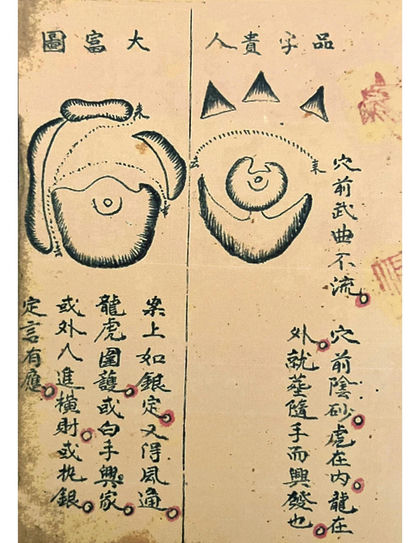 品字貴人
去
來
穴前武曲不流穴前陰砂虎在內龍在
外就塟隨手而興發也
大富圖
來
去
案上如銀定又得風通
龍虎圍護或白手興家
或外人進橫財或执銀
定言有應